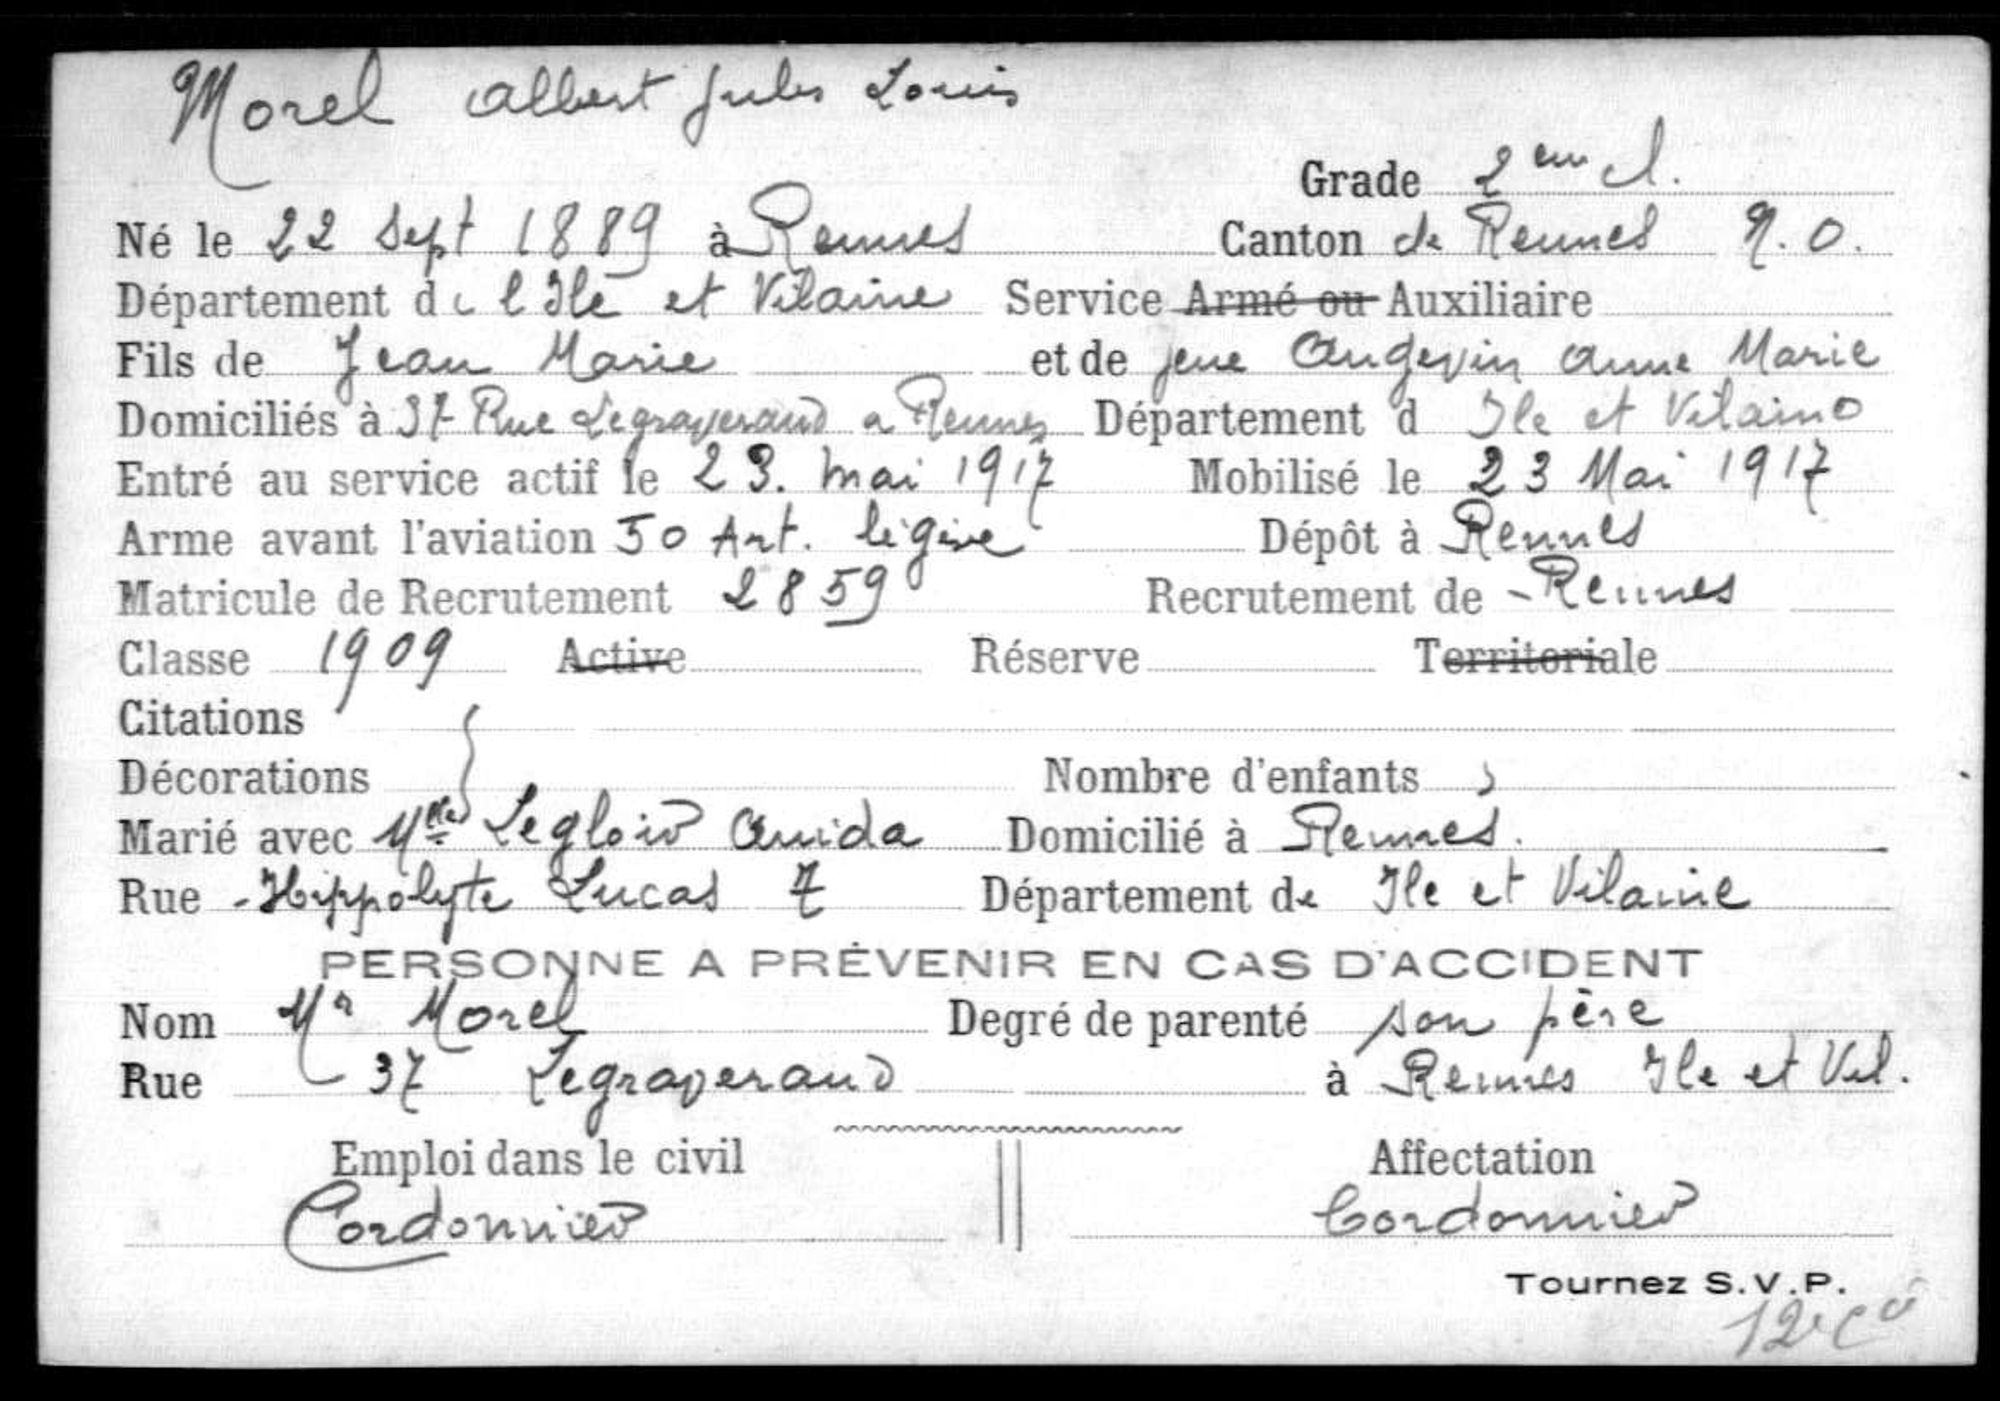 Morel Albert Jules Louis
Grade 2eme cl.
Né le 22 Sept 1889 à Rennes Canton de Rennes N. O.
Département de l'Ile et Vilaine Service Armé ou Auxiliaire
Fils de Jean Marie et de feue Angevin Anne Marie
Domiciliés à 37 Rue Legraverand a Rennes Département d Ile et Vilaine
Entré au service actif le 23. Mai 1917 Mobilisé le 23 Mai 1917
Arme avant l'aviation 50 Art. légère Dépôt à Rennes
Matricule de Recrutement 2859 Recrutement de - Rennes
Classe 1909 Active Réserve Territoriale
Citations
Décorations Nombre d'enfants
Marié avec Mlle Legloir Domicilié à Rennes.
Rue - Hippolyte Lucas 7 Département de Ile et Vilaine
PERSONNE A PRÉVENIR EN CAS D'ACCIDENT
Nom Mr Morel Degré de parenté son père
Rue 37 Legraverand à Rennes Ile et Vil.
Emploi dans le civil Affectation
Cordonnier Cordonnier
Tournez S.V.P.